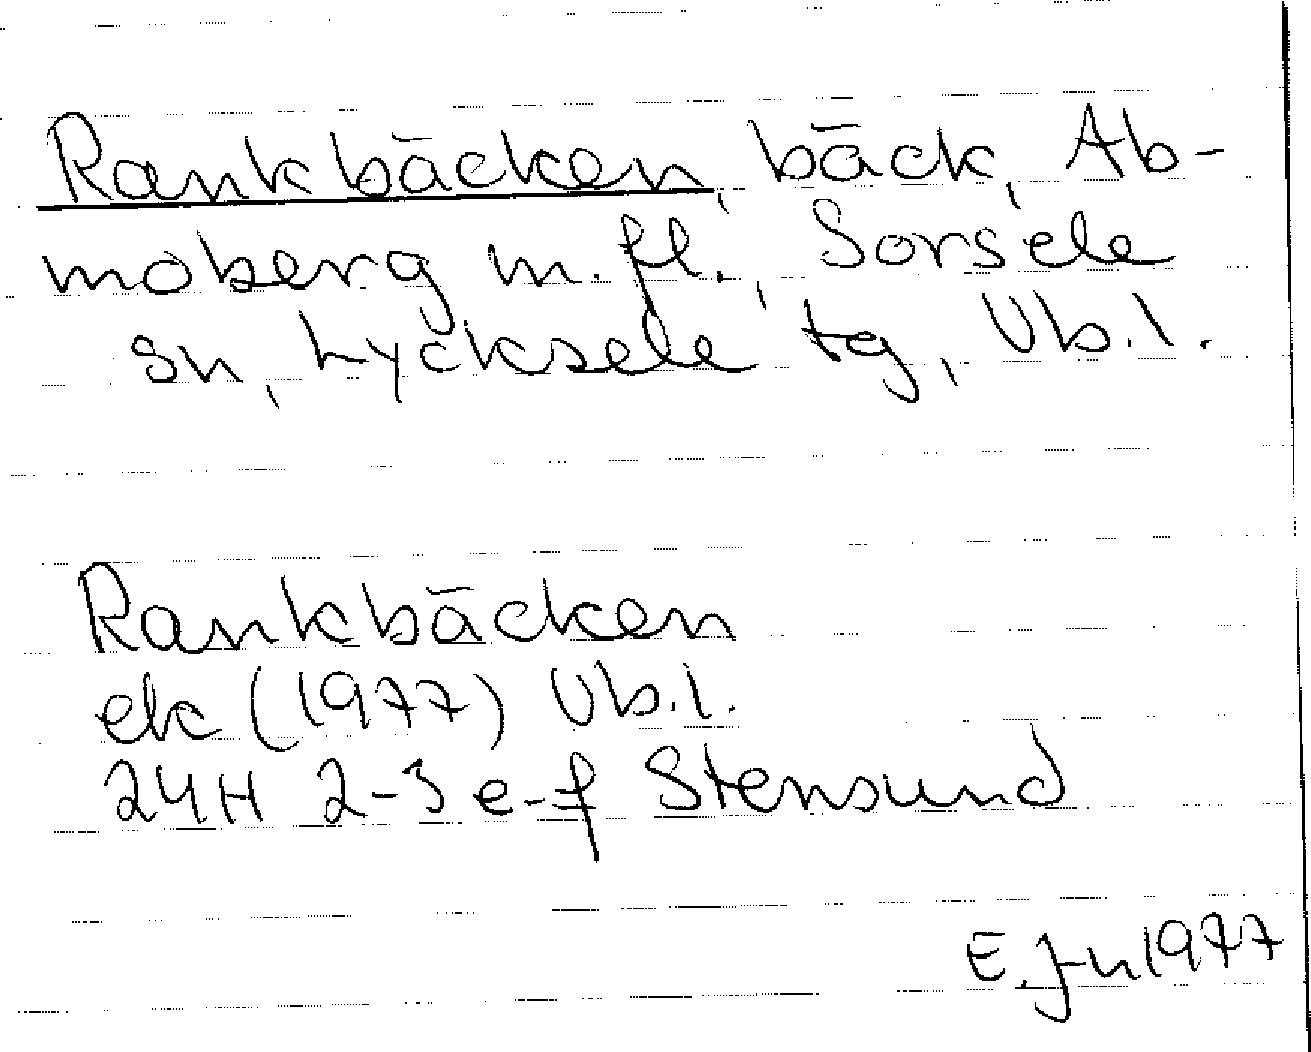 Rankbäcken, bäck, Ab-
moberg m.fl., Sorsele
sn, Lycksele tg, Vb.l.
Rankbäcken
ek (1977) Vb.l.
24H 2-3 e-f Stensund
E.Jn 1977